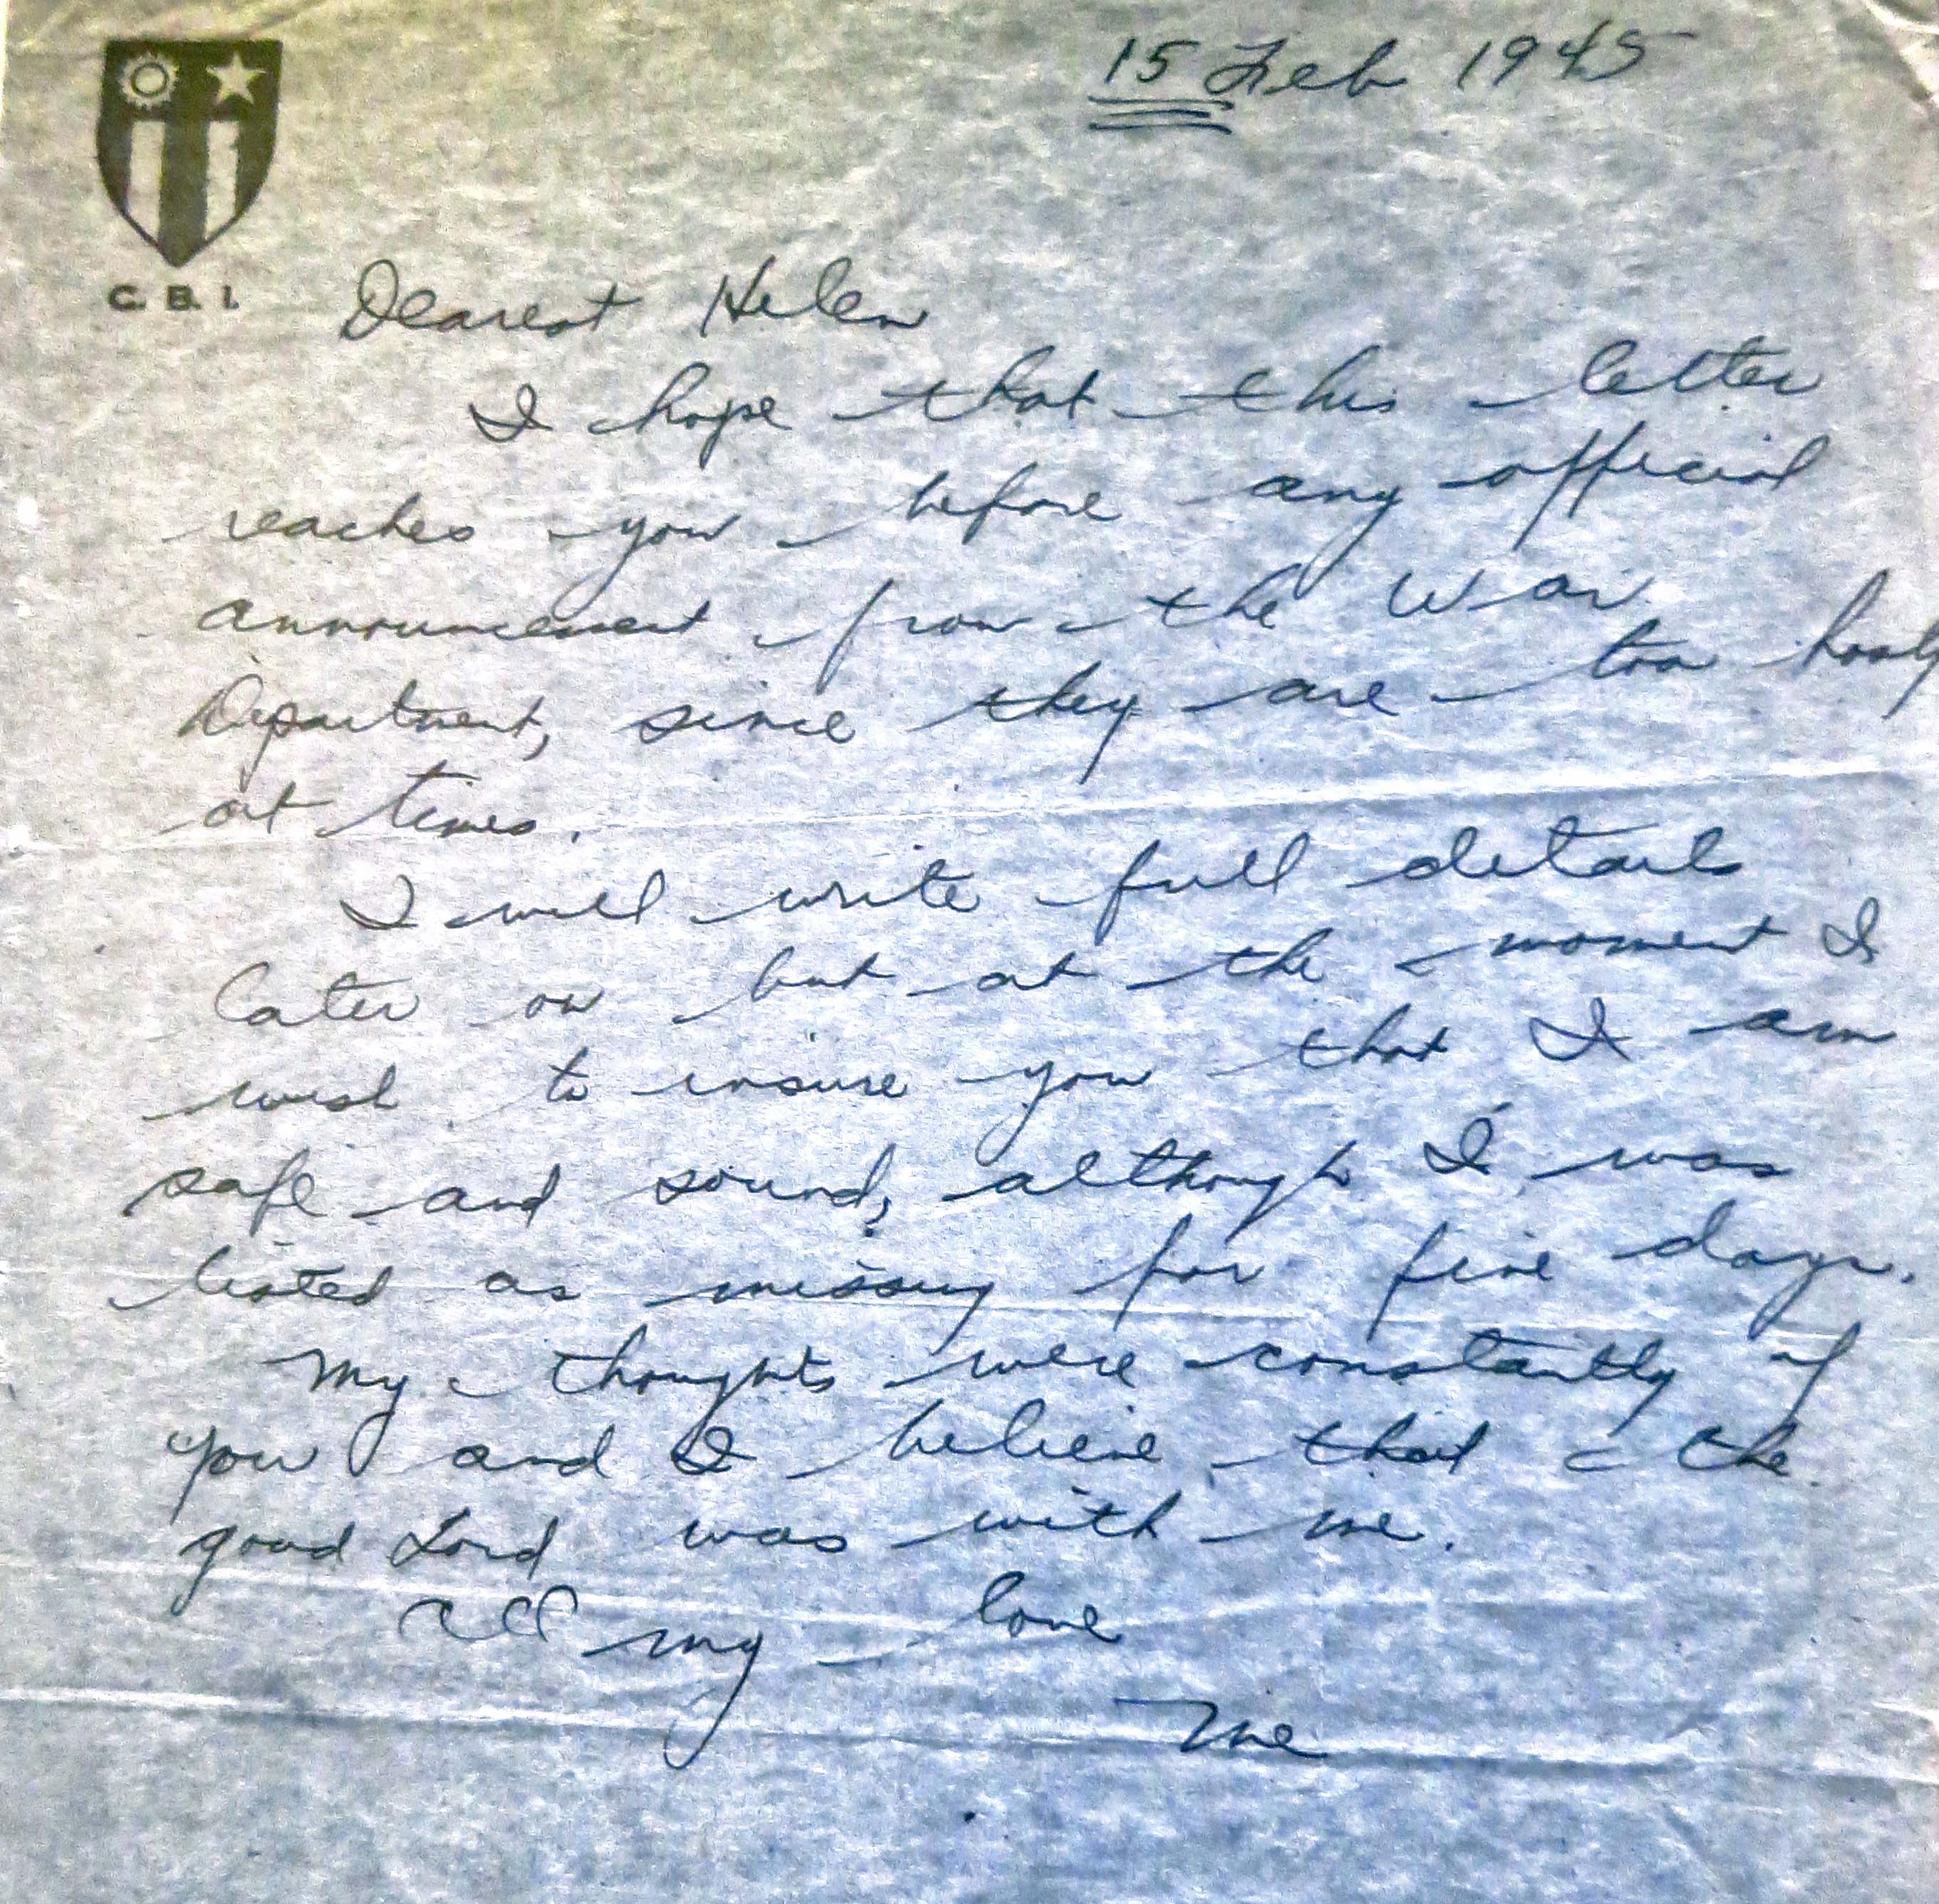 15 Feb 1945
C. B. I.
Dearest Helen
I hope that this letter
reaches you before any official
announcement from the War
Department, since they are too hasty
at times.
I will write full details
later on but at the moment I
wish to insure you that I am
safe and sound, although I was
listed as missing for five days.
My thoughts were constantly of
you and I believe that the
good Lord was with me.
All my love
Me